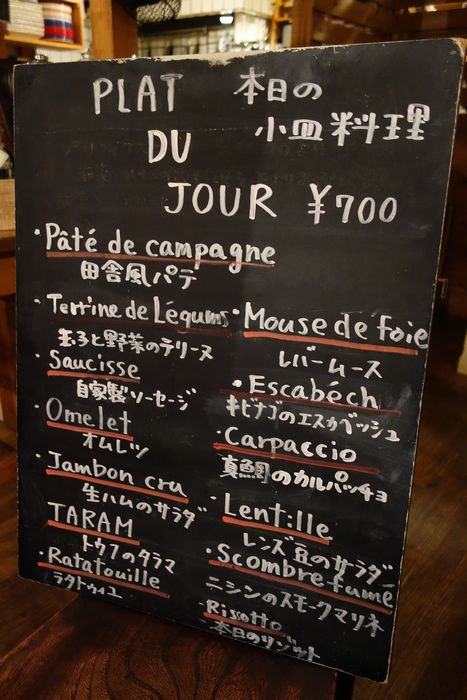 PLAT
DU
JOUR
本日の
小皿料理
¥700
・Pâté de campagne
田舎風パテ
・Terrine de Légums
まるごと野菜のテリーヌ
・Saucisse
自家製ソーセージ
・Omelet
オムレツ
・Jambon cru
生ハムのサラダ
TARAM
トウフのタラマ
・Ratatouille
ラタトゥイユ
・Mouse de foie
レバームース
・Escabéch
キビナゴのエスカベッシュ
・Carpaccio
真鯛のカルパッチョ
・Lentille
レンズ豆のサラダ
・Scombre fumé
ニシンのスモークマリネ
・Risotto
本日のリゾット